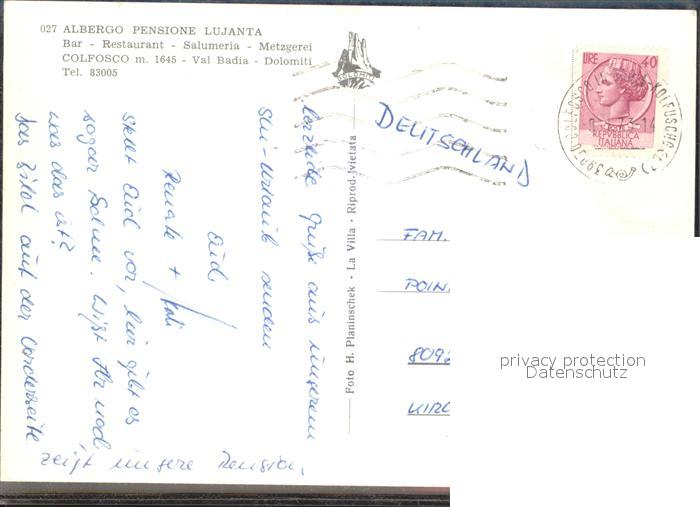 027 ALBERGO PENSIONE LUJANTA
Bar - Restaurant - Salumeria - Metzgerei
COLFOSCO m. 1645 - Val Badia - Dolomiti
Tel. 83005
DOLOMITI
LIRE 40
REPVBBLICA
ITALIANA
DEUTSCHLAND
FAM.
POIN
8092
KIRC
Foto H. Planinschek - La Villa - Riprod. vietata
Herzliche Grüße aus unserem
Ski-Urlaub senden
Euch
Renate +
Stellt Euch vor, hier gibt es
sogar Schnee. Wißt Ihr noch,
was das ist?
Das Bild auf der Vorderseite
zeigt unsere Pension.
privacy protection
Datenschutz